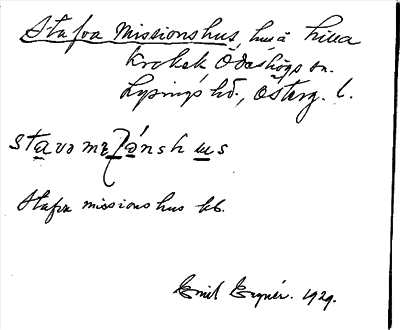 Stafva Missionshus, hus å Lilla
Krokek Ödeshögs sn.
Lysings hd., Österg. l.
stavə mɛʃónsh us
Stafva missionshus kb.
Emil 1929.